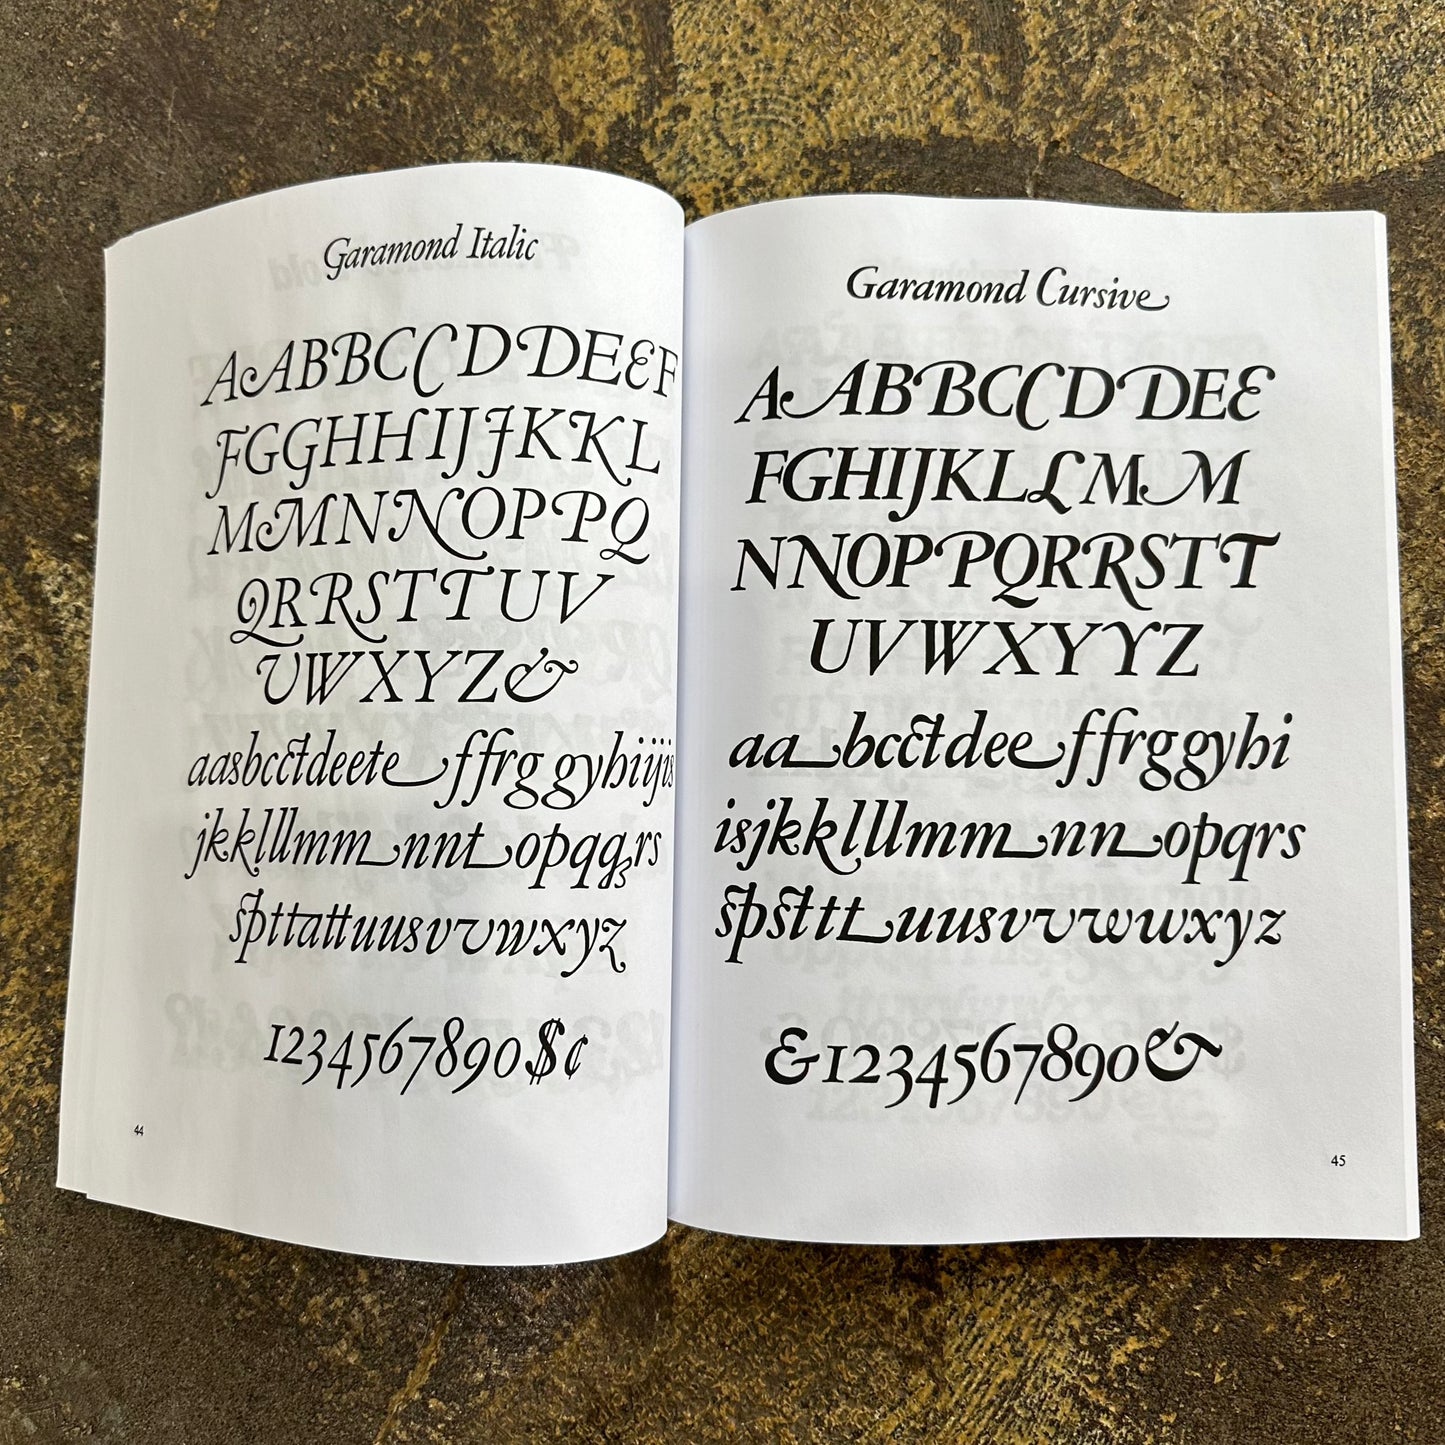 Garamond Italic
AAABBCCDDEEF
FGGHHIJJKKL
MMNNOPPQ
QRRSTTUV
VWXYZ&
aasbcctdeete ffrg gyhiijis
jkklllmm nnt opqqrs
spttattuusvvwxyz
1234567890$¢
44
Garamond Cursive
AABBCCDDEE
FGHIJKLLMM
NNOPPQRRSTT
UVWXYYZ
aa bcctdee ffrggyhi
isjkklllmm nn opqrs
spsttt uusvvwwxyz
&1234567890&
45